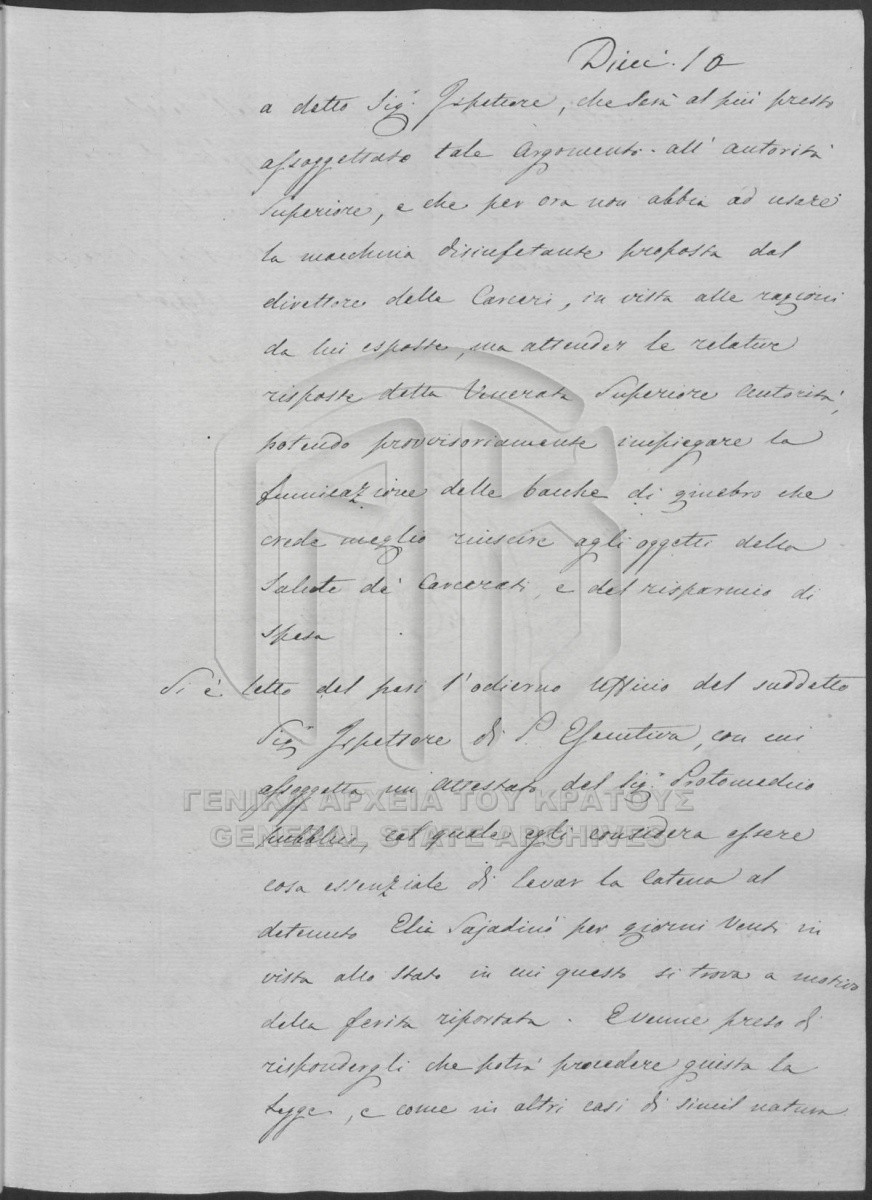 Dieci. 10
a detto Sig.r Ispettore, che sarà al più presto
assoggettato tale argomento all' autorità
Superiore, e che per ora non abbia ad usare
la macchina disinfetante proposta dal
direttore delle Carceri, in vista alle ragioni
da lui esposte, ma attender le relative
risposte della Venerata Superiore autorità,
potendo provvisoriamente impiegare la
fumicazione delle bacche di ginebro che
crede meglio riuscire agli oggetti della
Salute de' Carcerati, e del risparmio di
spesa
Si è letto del pari l'odierno Ufficio del suddetto
Sig.r Ispettore di P. Esecutiva, con cui
assoggetta un attestato del Sig.r Protomedico
pubblico, col quale egli considera essere
cosa essenziale di levar la Catena al
detenuto Elia per giorni Venti in
vista allo stato in cui questo si trova a motivo
della ferita riportata. E venne preso di
rispondergli che potrà procedere giusta la
Legge, e come in altri casi di simil natura
ΓΕΝΙΚΑ ΑΡΧΕΙΑ ΤΟΥ ΚΡΑΤΟΥΣ
GENERAL STATE ARCHIVES